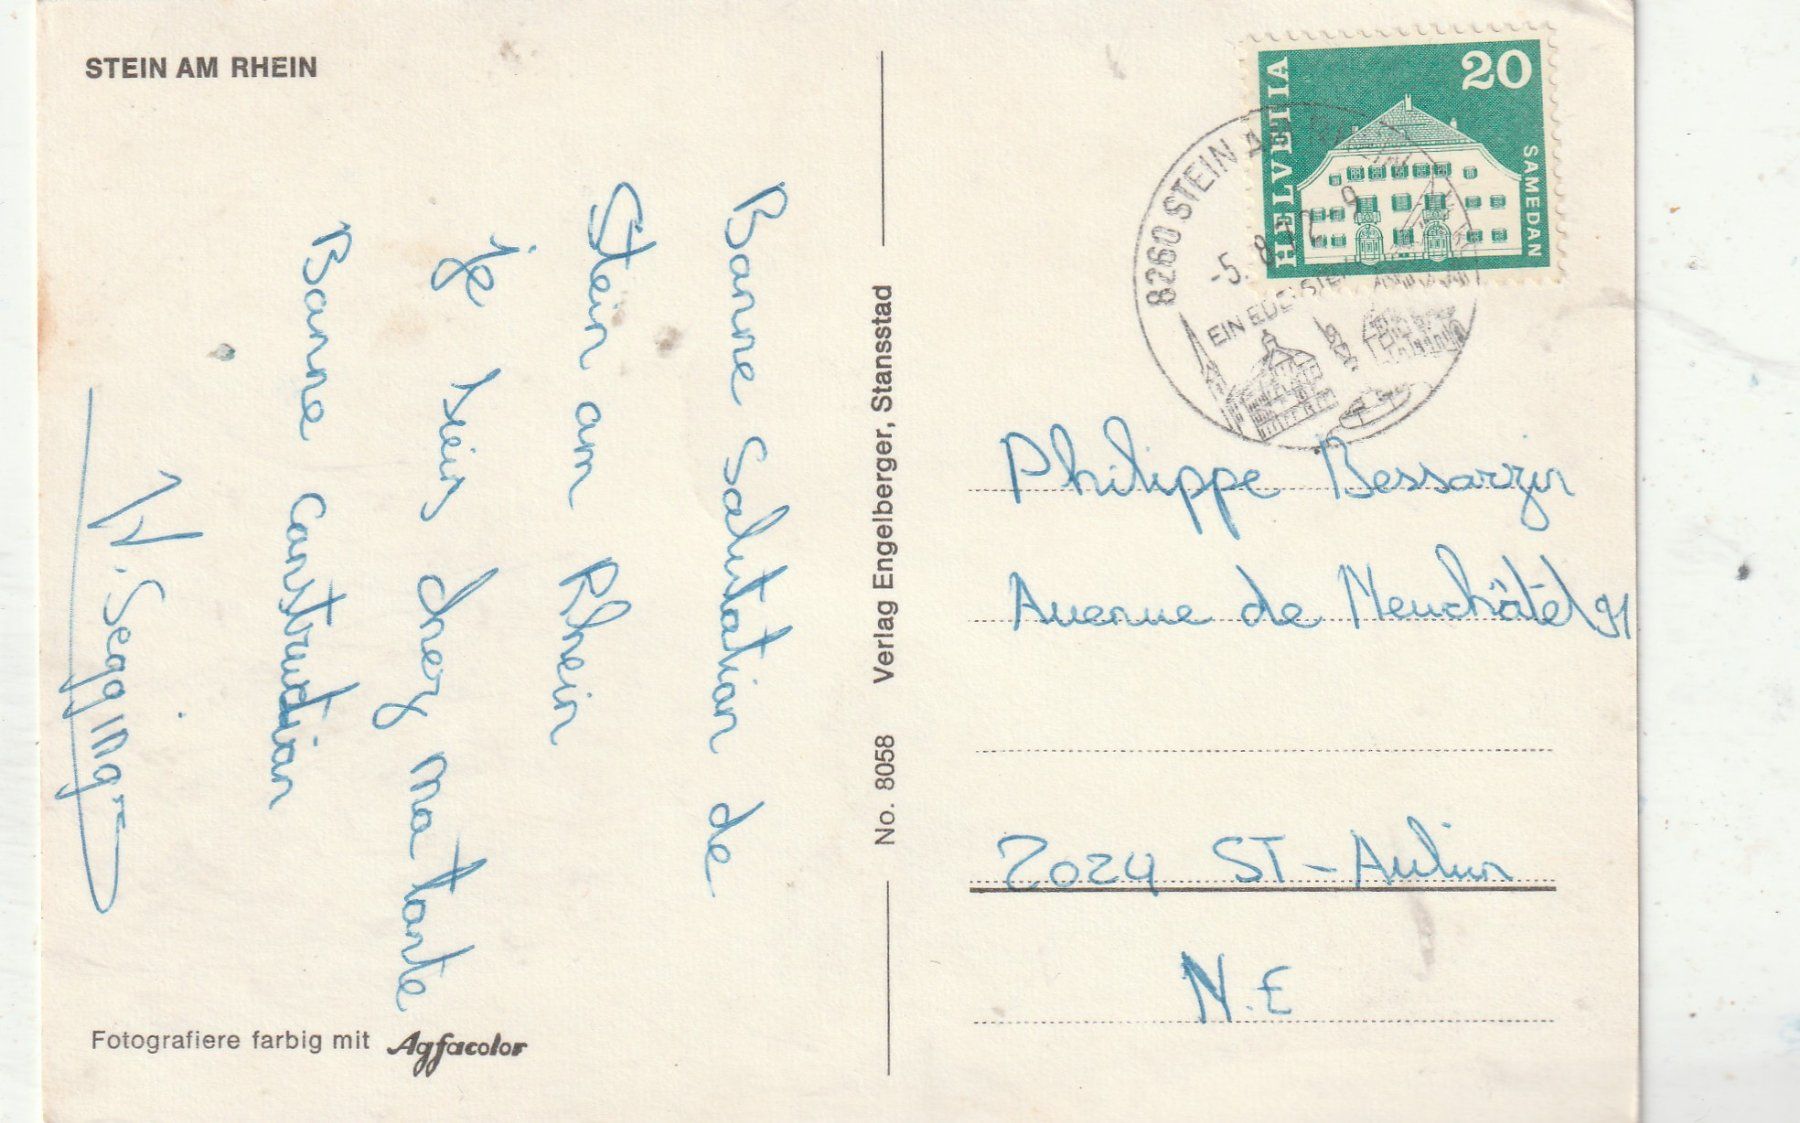 STEIN AM RHEIN
Bonne Salutation de
Stein am Rhein
je sein chez ma tante
Bonne Construction
W. Segginger
Fotografiere farbig mit Agfacolor
No. 8058 Verlag Engelberger, Stansstad
HELVETIA
20
SAMEDAN
8260 STEIN AM RHEIN
-5. 8. 72 - 9
EIN EDELSTEIN
Philippe Bessarzin
Avenue de Neuchâtel 91
2024 ST-Aubin
N.E